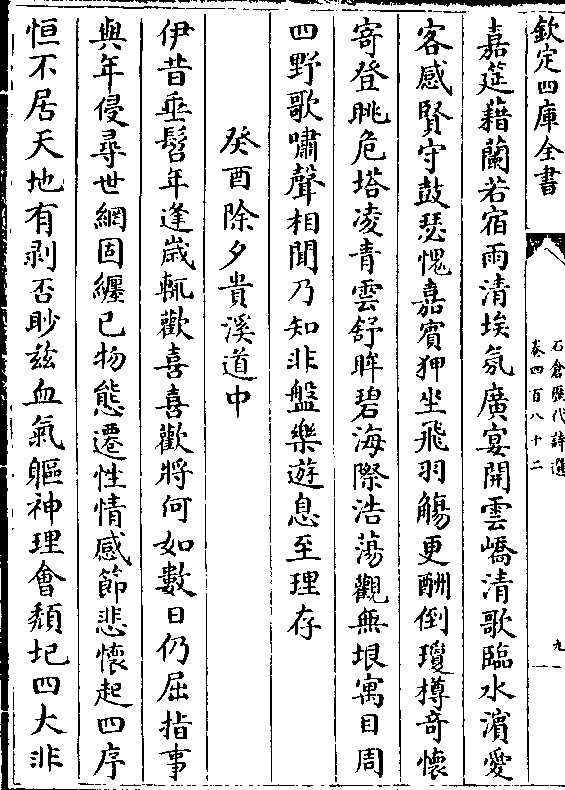 欽定四庫全書
石倉歷代詩選
卷四百八十二
九
嘉筵藉蘭若宿雨清埃氛廣宴開雲嶠清歌臨水濱愛
客感賢守鼓瑟愧嘉賓狎坐飛羽觴更酬倒瓊樽奇懷
寄登眺危塔凌青雲舒眸碧海際浩蕩觀無垠寓目周
四野歌嘯聲相聞乃知非盤樂遊息至理存
癸酉除夕貴溪道中
伊昔垂髫年逢歲輒歡喜喜歡將何如數日仍屈指事
與年侵尋世網固纏已物態遷性情感節悲懷起四序
恒不居天地有剥否眇茲血氣軀神理會頽圮四大非